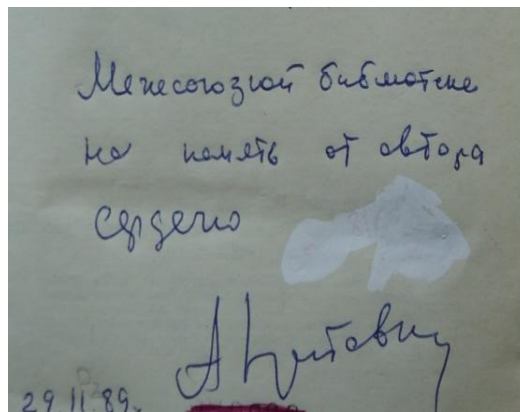 Межсоюзной библиотеке
на память от автора
Сердечно
29.11.89.